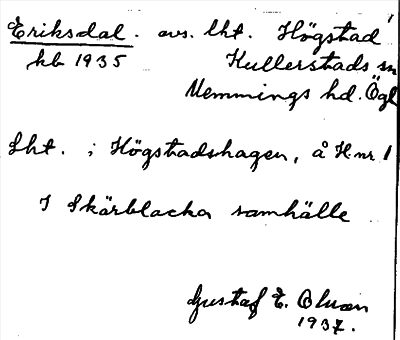 Eriksdal. avs. lht. Högstad
kb 1935 Kullerstads sn
Memmings hd. Ögl
Lht. i Högstadshagen, å H nr 1
I Skärblacka samhälle
Gustaf E. Olsson
1937.